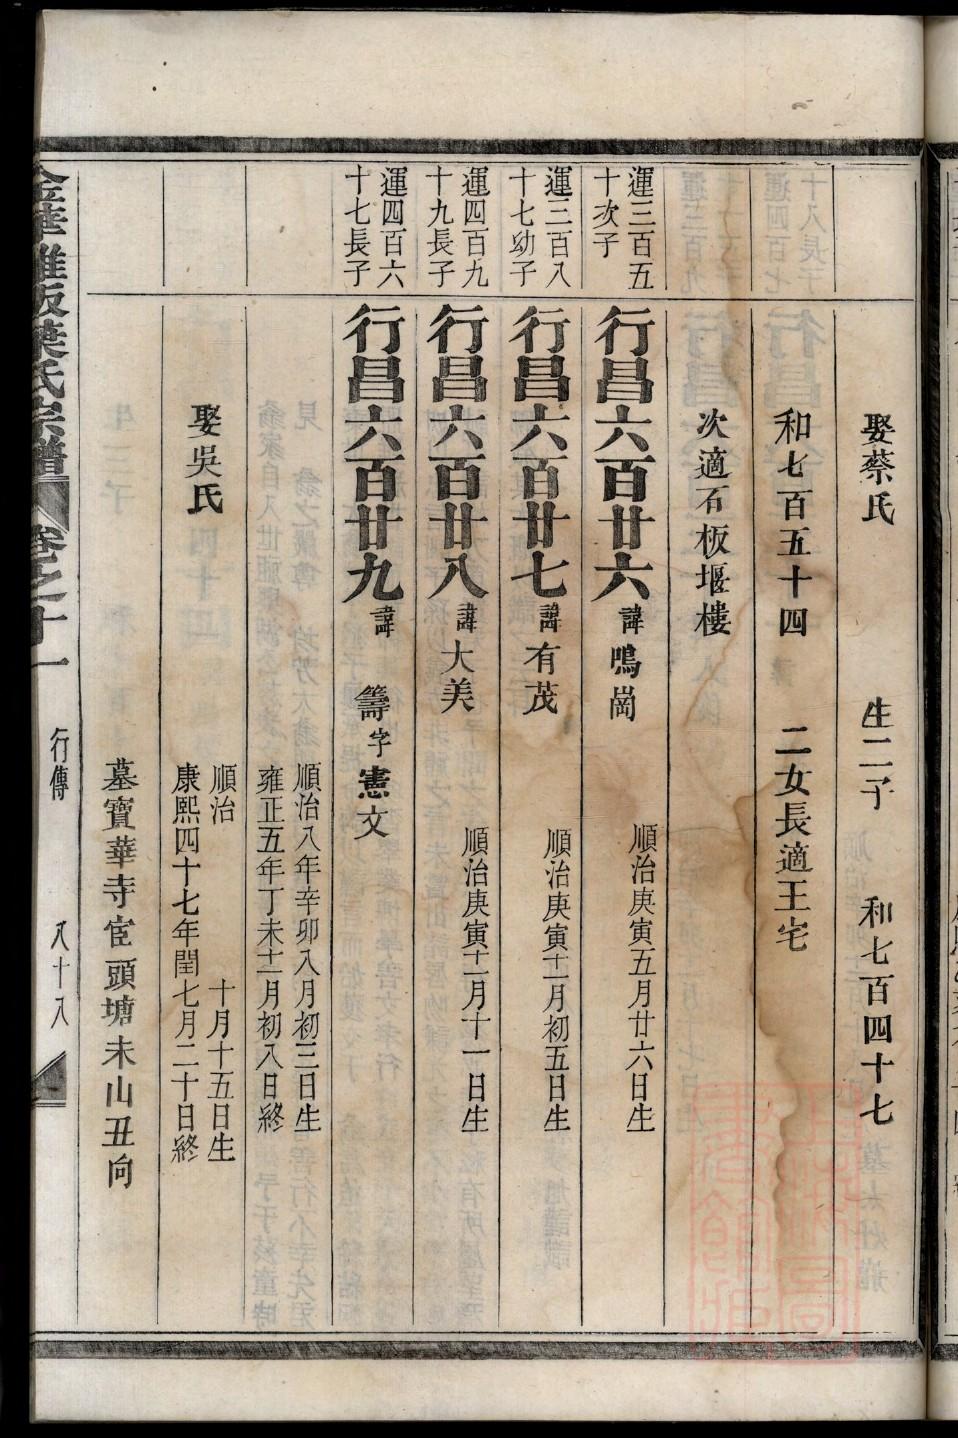 娶蔡氏　生二子　和七百四十七
和七百五十四　二女長適王宅
次適石板堰樓
運三百五
十次子
行昌六百廿六 諱鳴崗 順治庚寅五月廿六日生
運三百八
十七幼子
行昌六百廿七 諱有茂 順治庚寅十一月初五日生
運四百九
十九長子
行昌六百廿八 諱大美 順治庚寅十一月十一日生
運四百六
十七長子
行昌六百廿九 諱籌字憲文
順治八年辛卯八月初三日生
雍正五年丁未十二月初八日終
娶吳氏
順治　十月十五日生
康熙四十七年閏七月二十日終
墓寶華寺宦頭塘未山丑向
金華雅畈葉氏宗譜 卷之十一 行傳 八十八